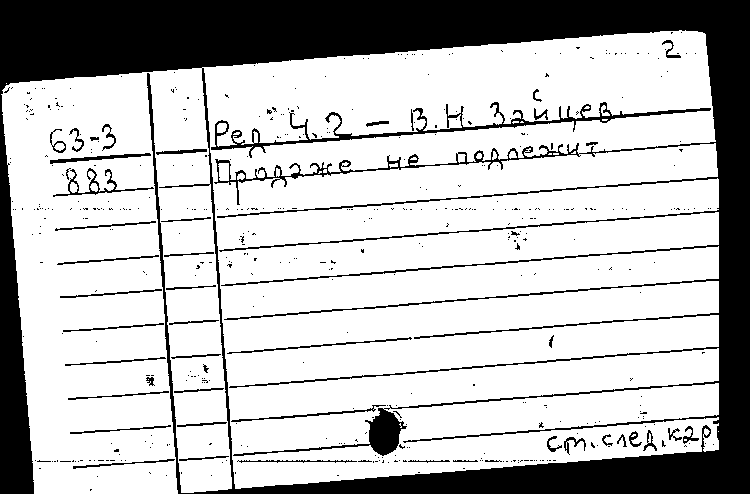 2
63-3 Ред. Ч.2 — В.Н. Зайцев.
883 Продаже не подлежит.
см. след. кар